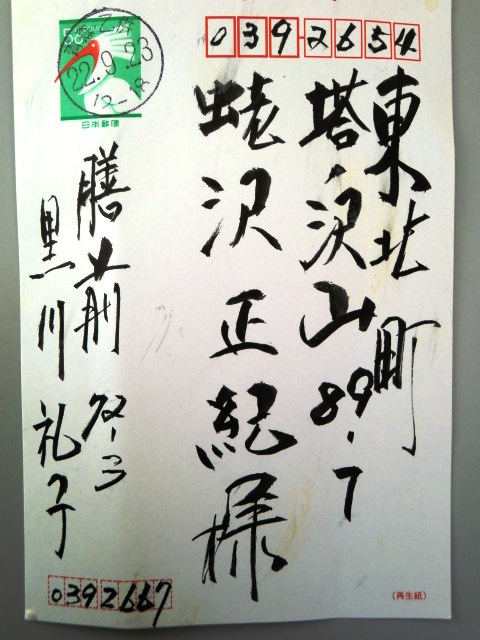 039-2654
東北町
塔ノ沢山89-7
蛯沢正紀様
膳前 92-3
黒川礼子
0392667
50
22.9.23
12-18
日本郵便
(再生紙)